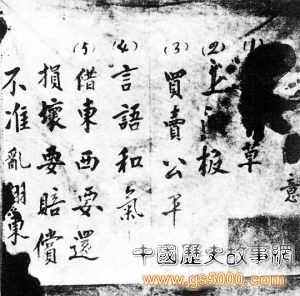 意
(1) 草
(2) 上 板
(3) 買賣公平
(4) 言語和氣
(5) 借東西要還
損壞要賠償
不准亂翻東
中國歷史故事網
www.gs5000.cn